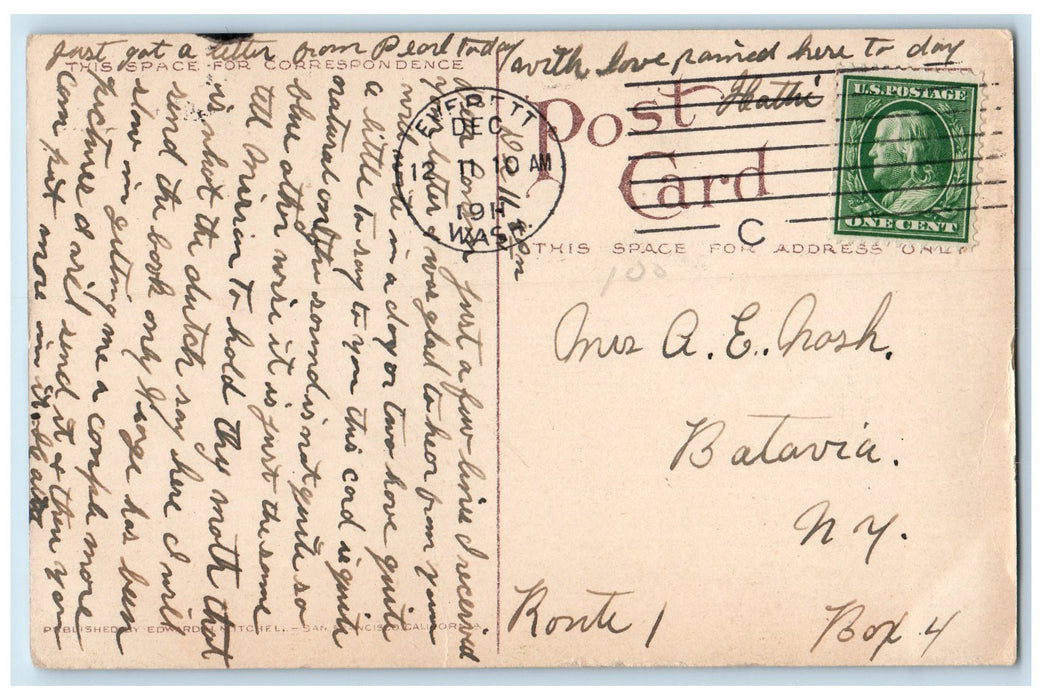 Just got a letter from Pearl today
with love rained here to day
Hattie
THIS SPACE FOR CORRESPONDENCE
Post
Card
THIS SPACE FOR ADDRESS ONLY
EVERETT
DEC
12 11 10 AM
1911
WASH
C
U.S. POSTAGE
ONE CENT
100
Dec 11th
Just a few lines I received
your letter & was glad to hear from you
will write in a day or two have quite
a little to say to you this card is quite
natural only the sound is not quite so
blue other wise it is just the same
tell Mirian to hold thy moth that
is what the dutch say here I will
send the book only George has been
slow in getting me a couple more
pictures & will send it & then you
can put more in
Mrs A. E. Nash.
Batavia.
N Y.
Route 1
Box 4
PUBLISHED BY EDWARD H. MITCHELL - SAN FRANCISCO, CALIFORNIA